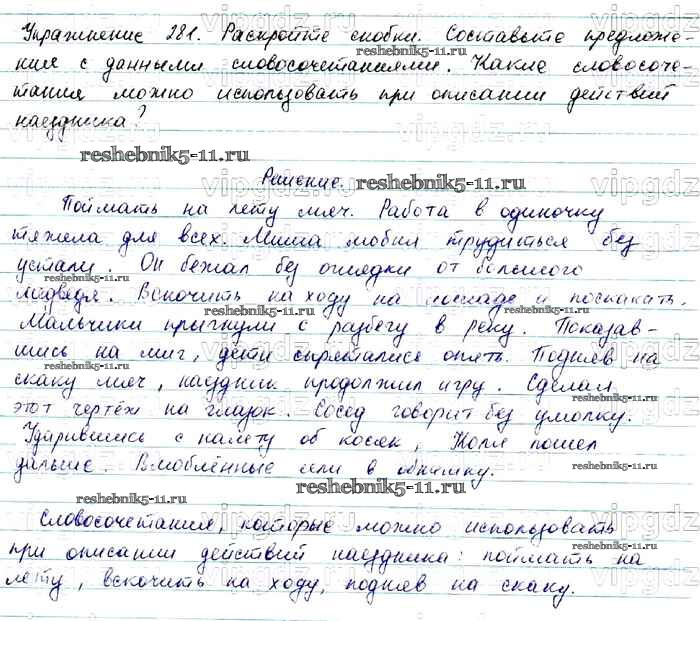 Упражнение 281. Раскройте скобки. Составьте предложе-
ния с данными словосочетаниями. Какие словосоче-
тания можно использовать при описании действий
наездника?
Решение.
Поймать на лету мяч. Работа в одиночку
тяжела для всех. Миша любил трудиться без
устали. Он бежал без оглядки от большого
медведя. Вскочить на ходу на лошаде и поскакать.
Мальчики прыгнули с разбегу в реку. Показав-
шись на миг, дети спрятались опять. Подняв на
скаку мяч, наездник продолжил игру. Сделал
этот чертёж на глазок. Сосед говорит без умолку.
Ударившись с налету об косяк, Коля пошел
дальше. Влюблённые шли в обнимку.
Словосочетания, которые можно использовать
при описании действий наездника: поймать на
лету, вскочить на ходу, подняв на скаку.
reshebnik5-11.ru
reshebnik5-11.ru
reshebnik5-11.ru
reshebnik5-11.ru
reshebnik5-11.ru
reshebnik5-11.ru
reshebnik5-11.ru
reshebnik5-11.ru
reshebnik5-11.ru
reshebnik5-11.ru
vipgdz